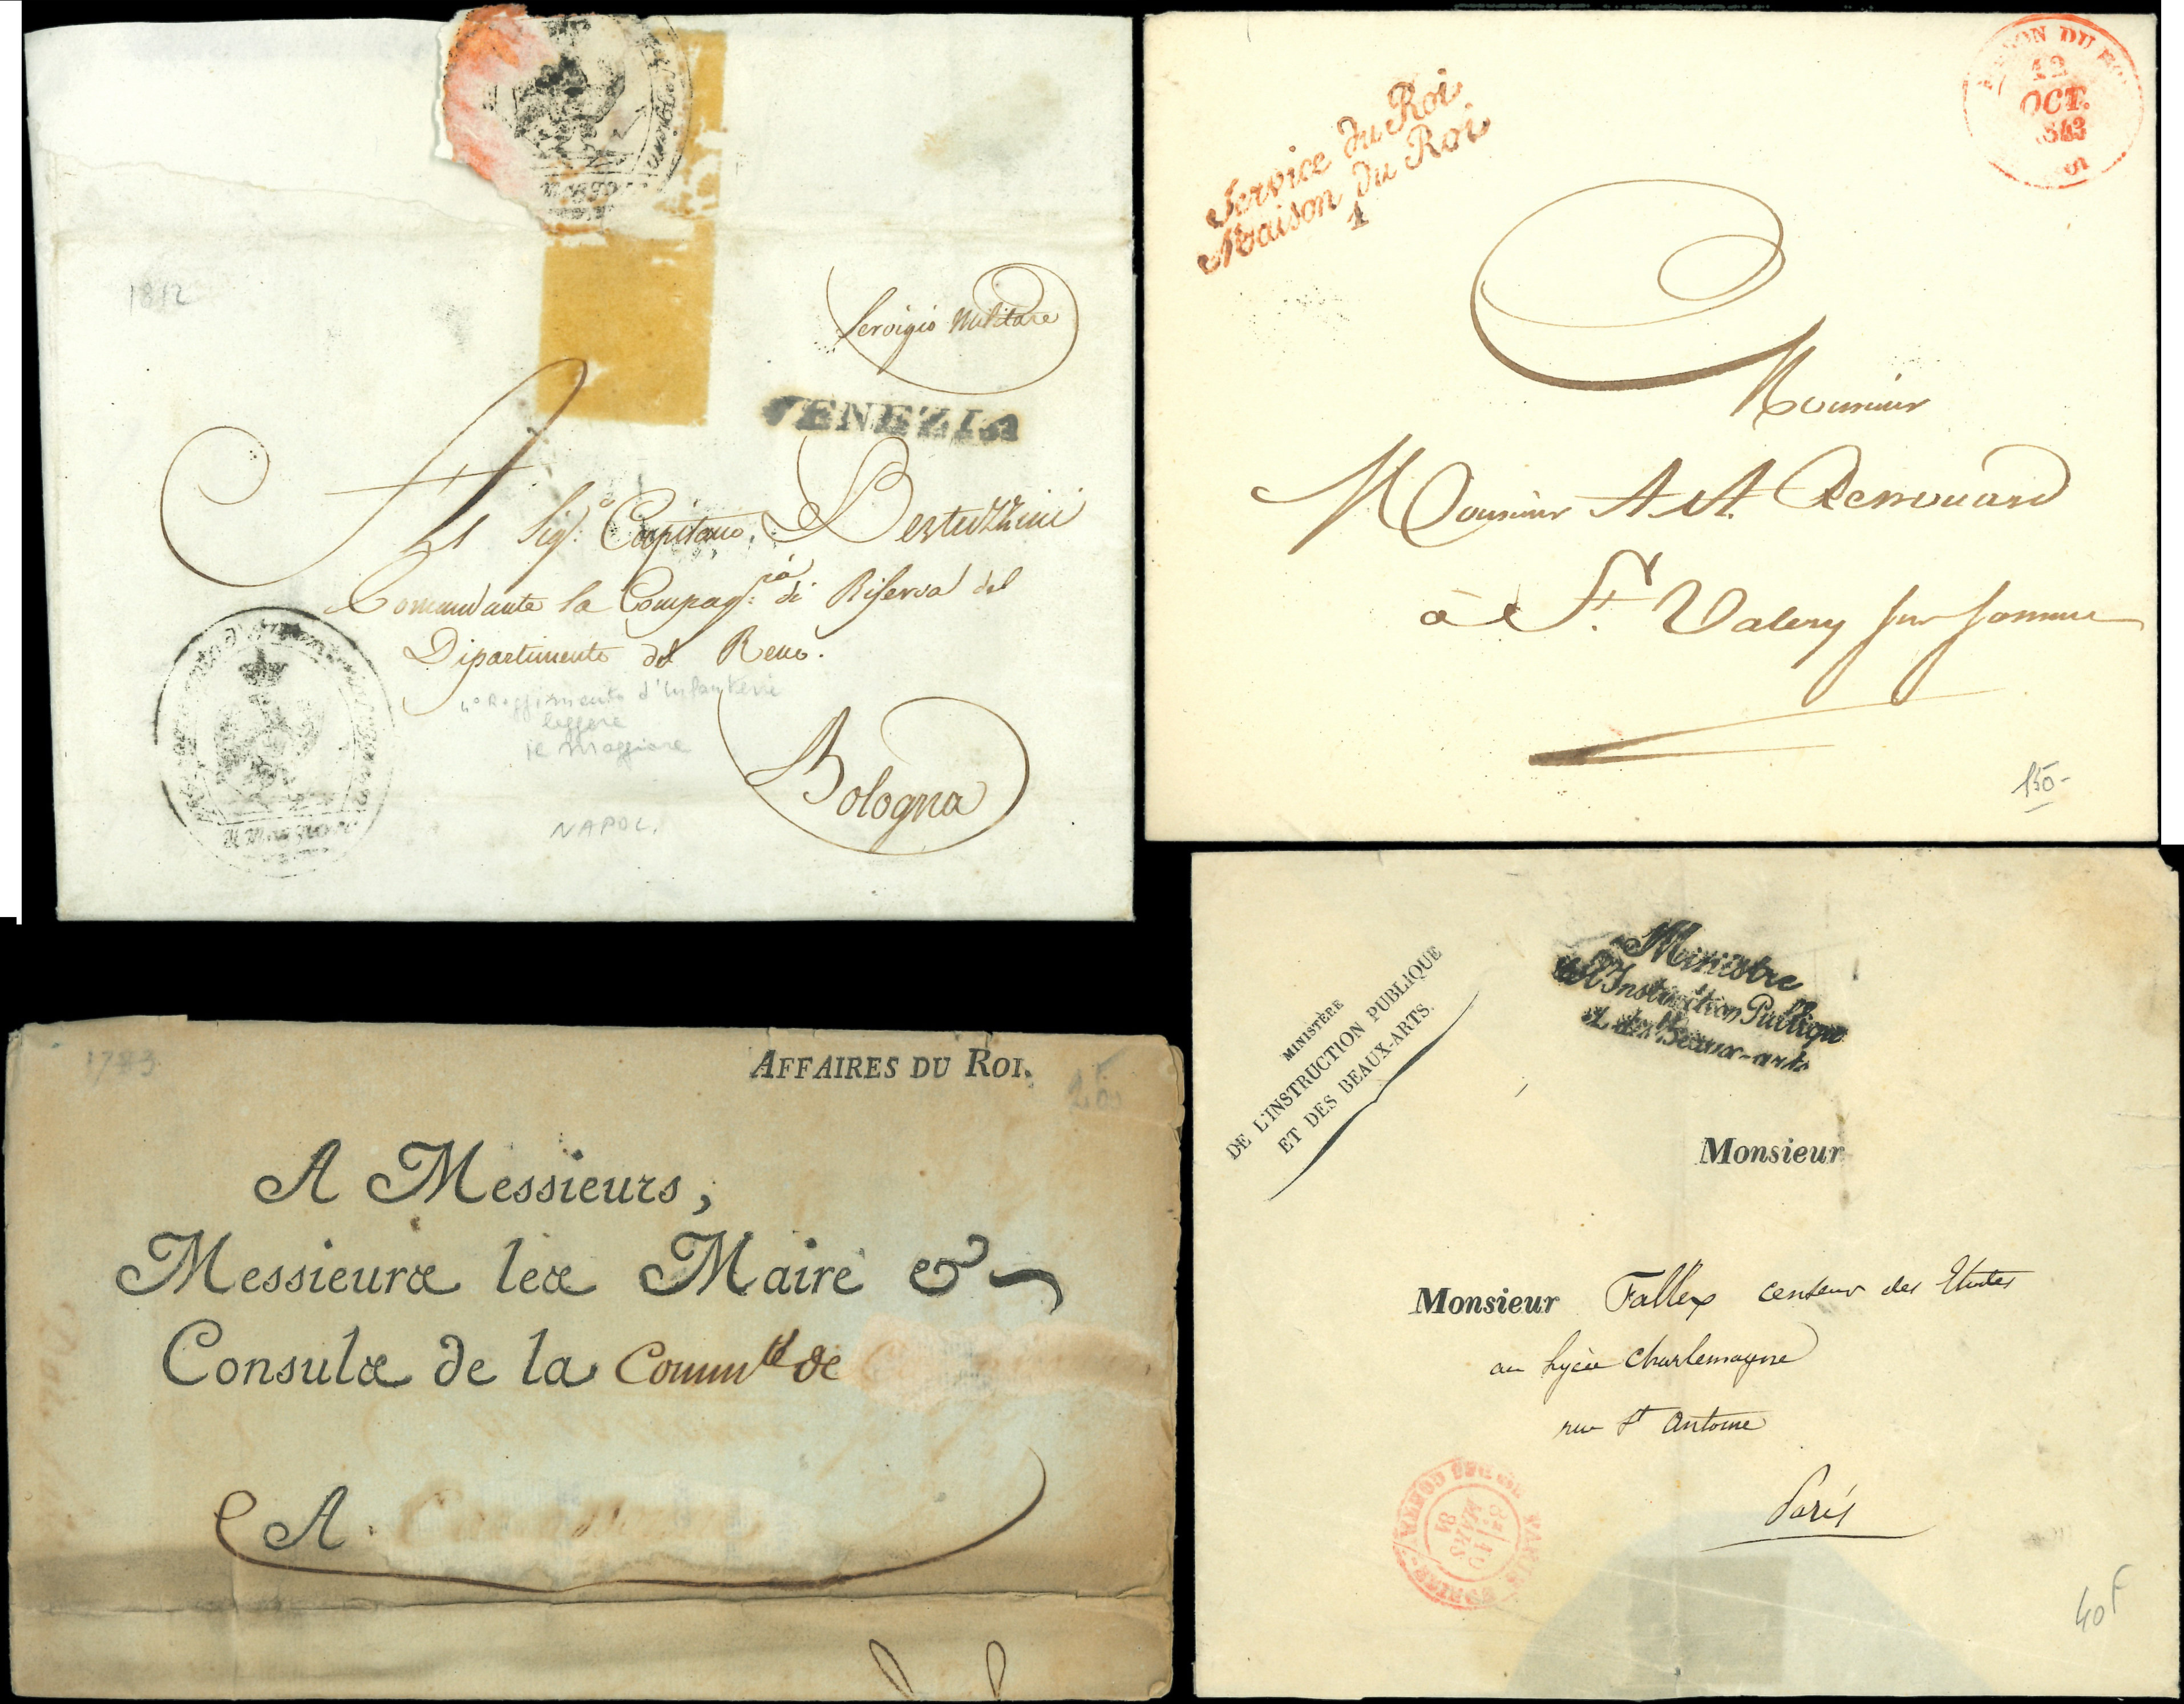 1812
Servigio Militare
VENEZIA
Al Sig.º Capitano Bertuzzini
Comandante la Compag.nia di Riserva del
Dipartimento del Reno.
4º Reggimento d'Infanterie
leggere
il Maggiore
Il Maggiore
NAPOL.
Bologna
Service du Roi
Maison du Roi
1
MAISON DU ROI
12
OCT.
1843
Monsieur
Monsieur A. A. Renouard
à St. Valery sur somme
150-
1783
AFFAIRES DU ROI.
A Messieurs,
Messieurs les Maire &
Consuls de la Commté de
A
MINISTÈRE
DE L'INSTRUCTION PUBLIQUE
ET DES BEAUX-ARTS.
Ministre
de l'Instruction Publique
et des Beaux-arts
Monsieur
Monsieur Fallex censeur des Etudes
au Lycée Charlemagne
rue St Antoine
Paris
MARS
40F